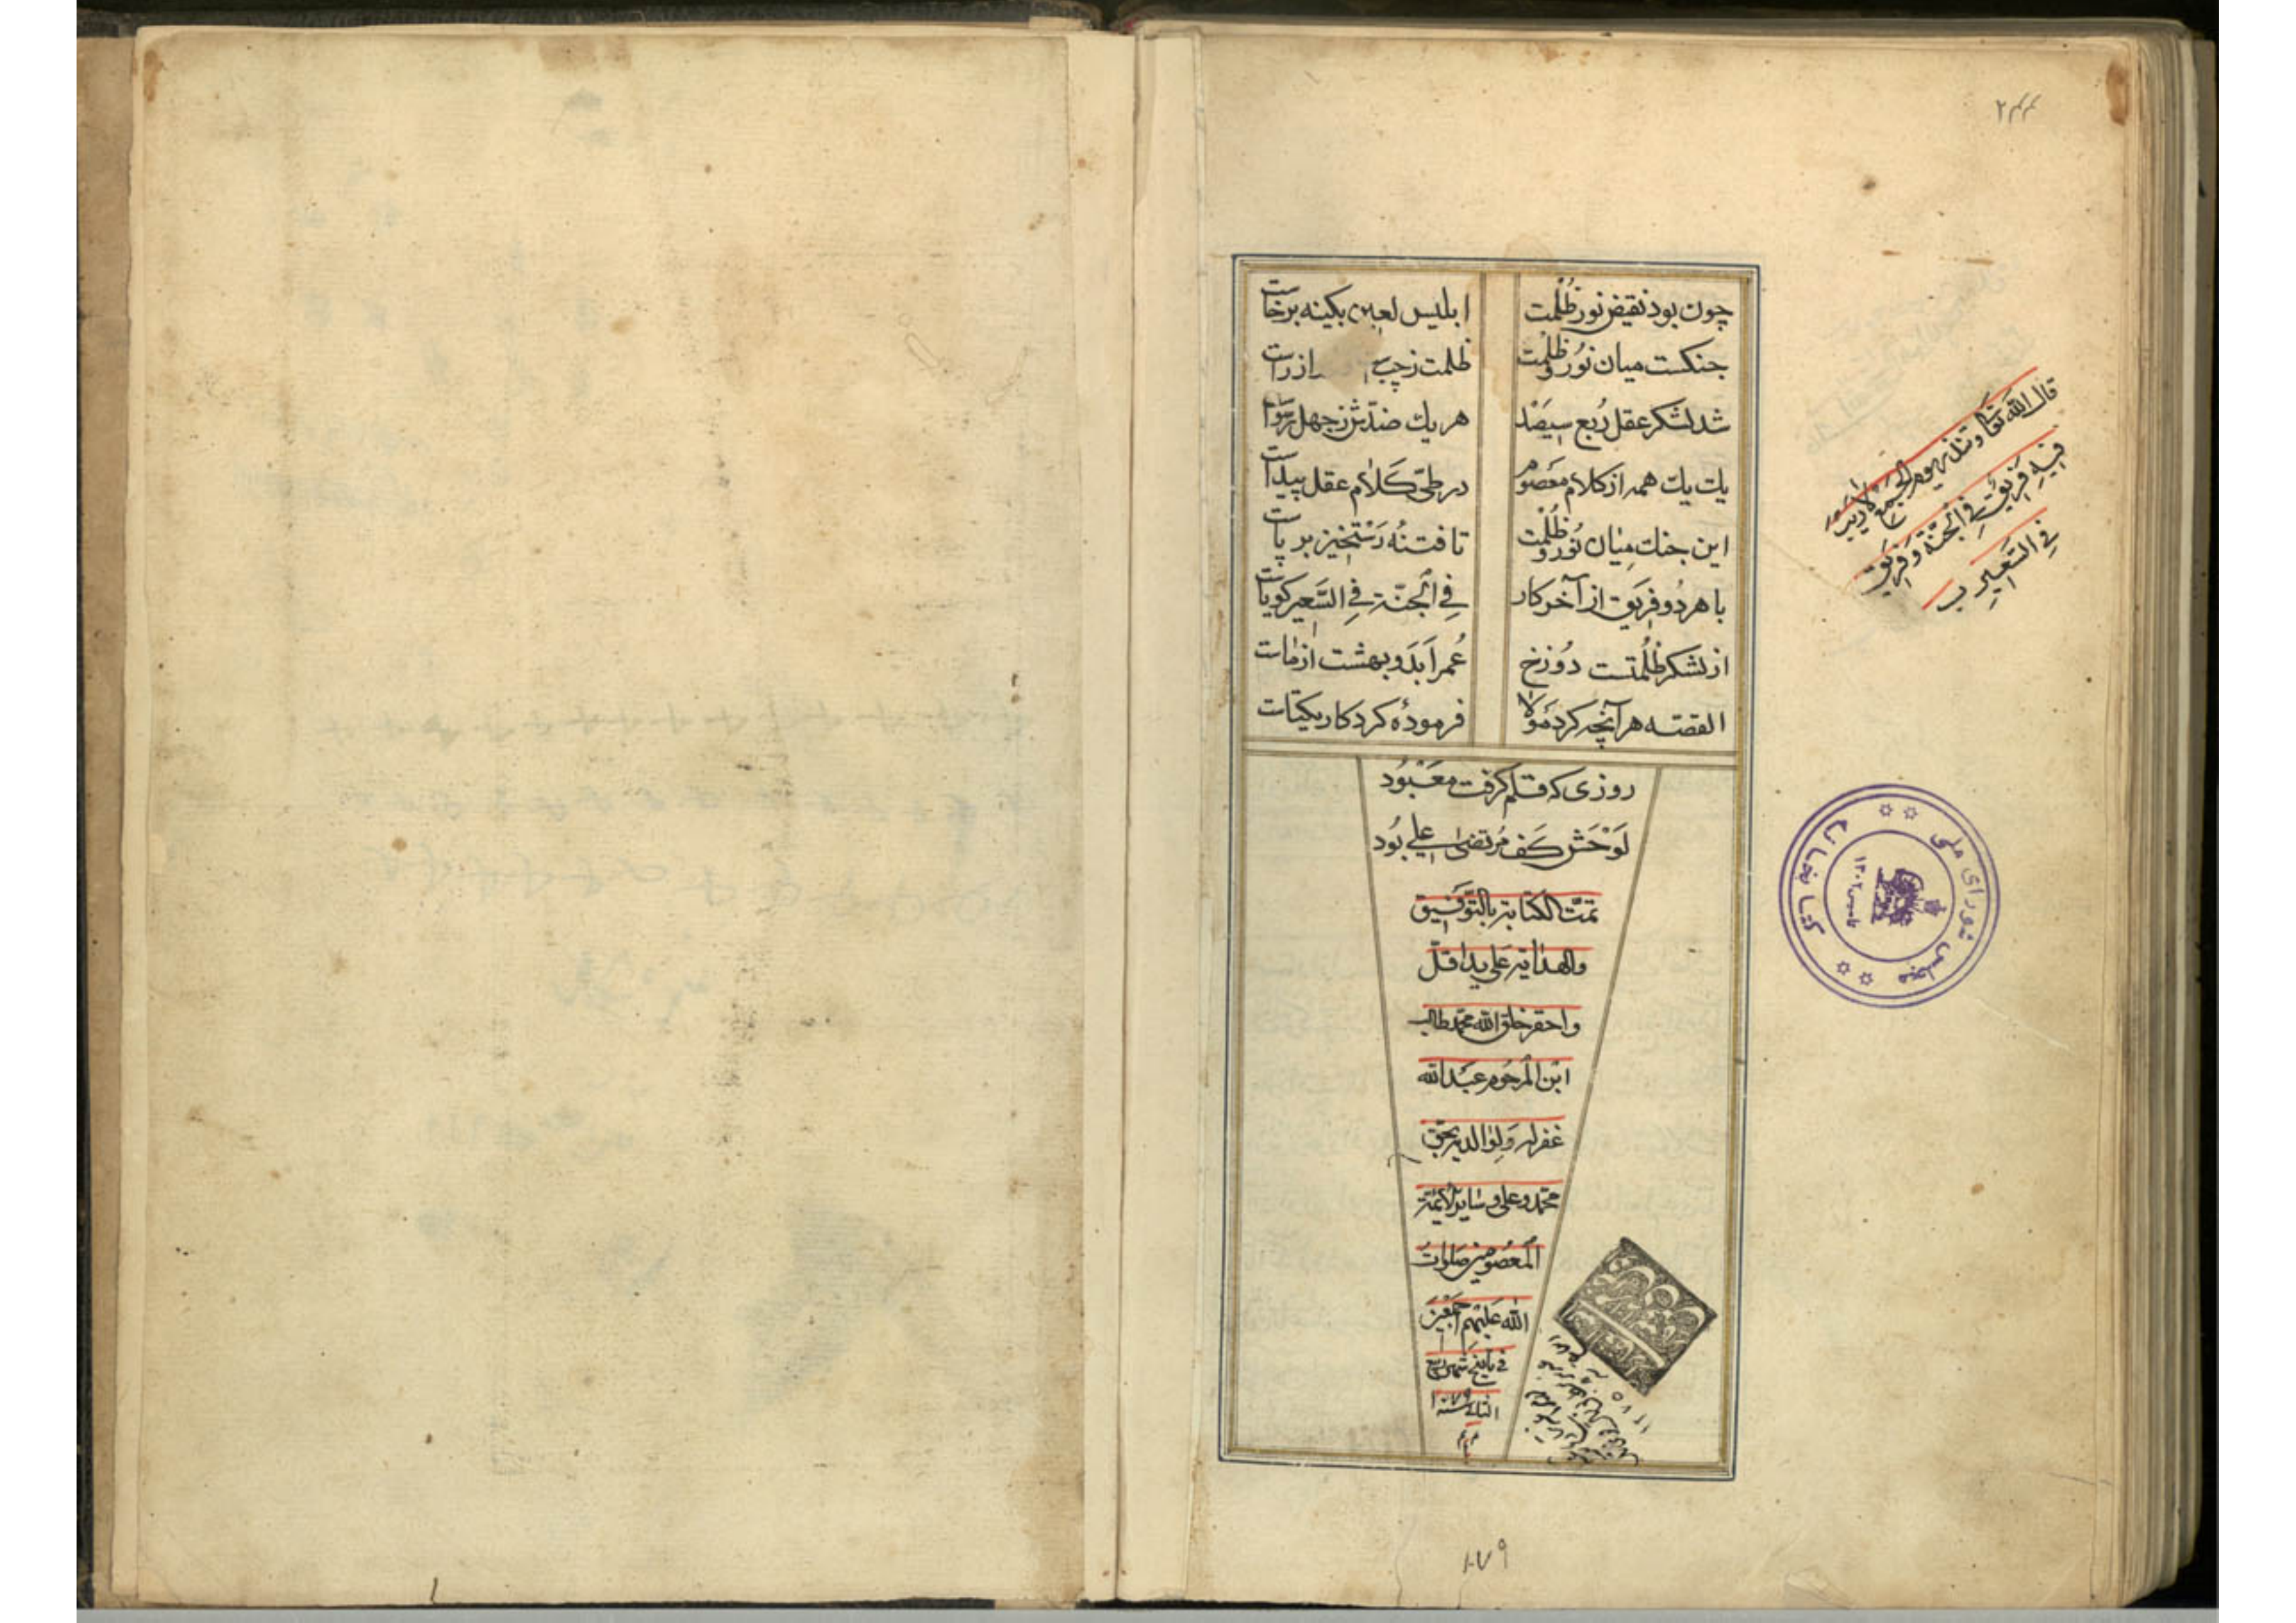 ۲۴۴
چون بود نقیض نور ظُلْمت ابلیس لعین بکینه برخاست
جنکست میان نوُر وظلْمت ظلمت زچپ از راست
شد لشکر عقل رُبع سیصَد هریك ضدّش زجهل برَخواست
یك یك همه از کلام معَصوُم در طیّ کَلام عقل پیداست
این جنك مِیٰان نوُر و ظُلْمت تا فتنهُ رَسْتَخیز برپاست
با هر دُو فِریَق از آخر کار فِي الْجنّة فِي السَّعیر کویاست
از لشکر ظُلُمتست دوُزخ عُمر اَبَد و بهشت از مٰاست
القصّه هر آنچه کرد مَوُلا فرمودهُ کردکار یکتاست
روزی که قلم کرفت معَْبوُد
لَوْحَش کَف مُرتضیٰ علي بوُد
تمّت الکتابة بالتّوَفیق
والهدایة عَلی ید اقلّ
واحقر خلق الله محمّد طالب
ابْن المرحُوم عبَْدالله
غفر له وَلِوٰالدیه بحّق
محمّد وعلی وسٰایر الائمّة
المعْصوُمین صَلوٰاتُ
الله عَلیْهم اجمْعَینَ
في تاریخ شهر ربیع
الثانی سنة ۱۰۷۹
قال الله تعٰالی وتنذر یوم الجَمع لاریب
فیه فَریق فِي الجنّة وفَریق
فِي السَّعیر
مجلس شورای ملی
کتابخانه
۱۳۰۲
۱۱۷۵
۱۰۷۹